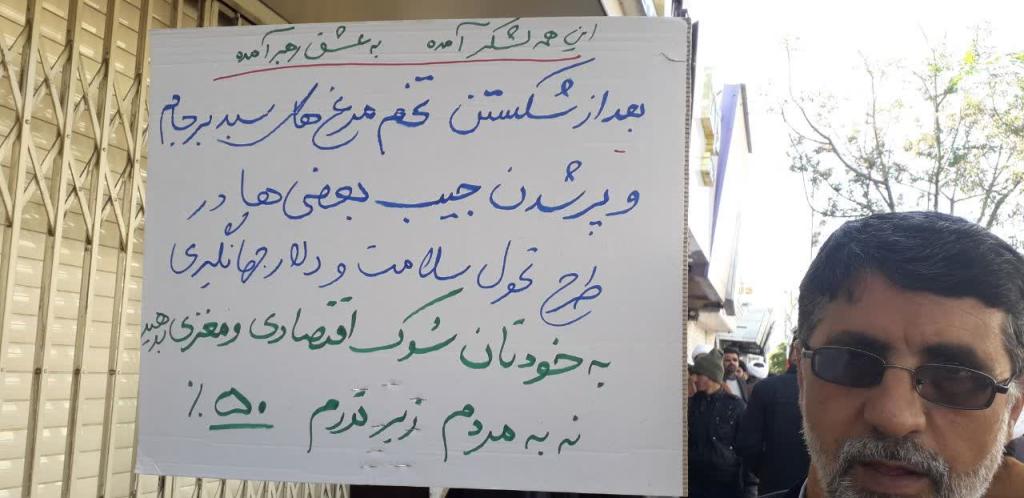 این همه لشکر آمده به عشق رهبر آمده
بعد از شکستن تخم مرغ های سبد برجام
و پر شدن جیب بعضی ها در
طرح تحول سلامت و دلار جهانگیری
به خودتان شوک اقتصادی و مغزی بدهید
نه به مردم زیر تورم ۵۰٪